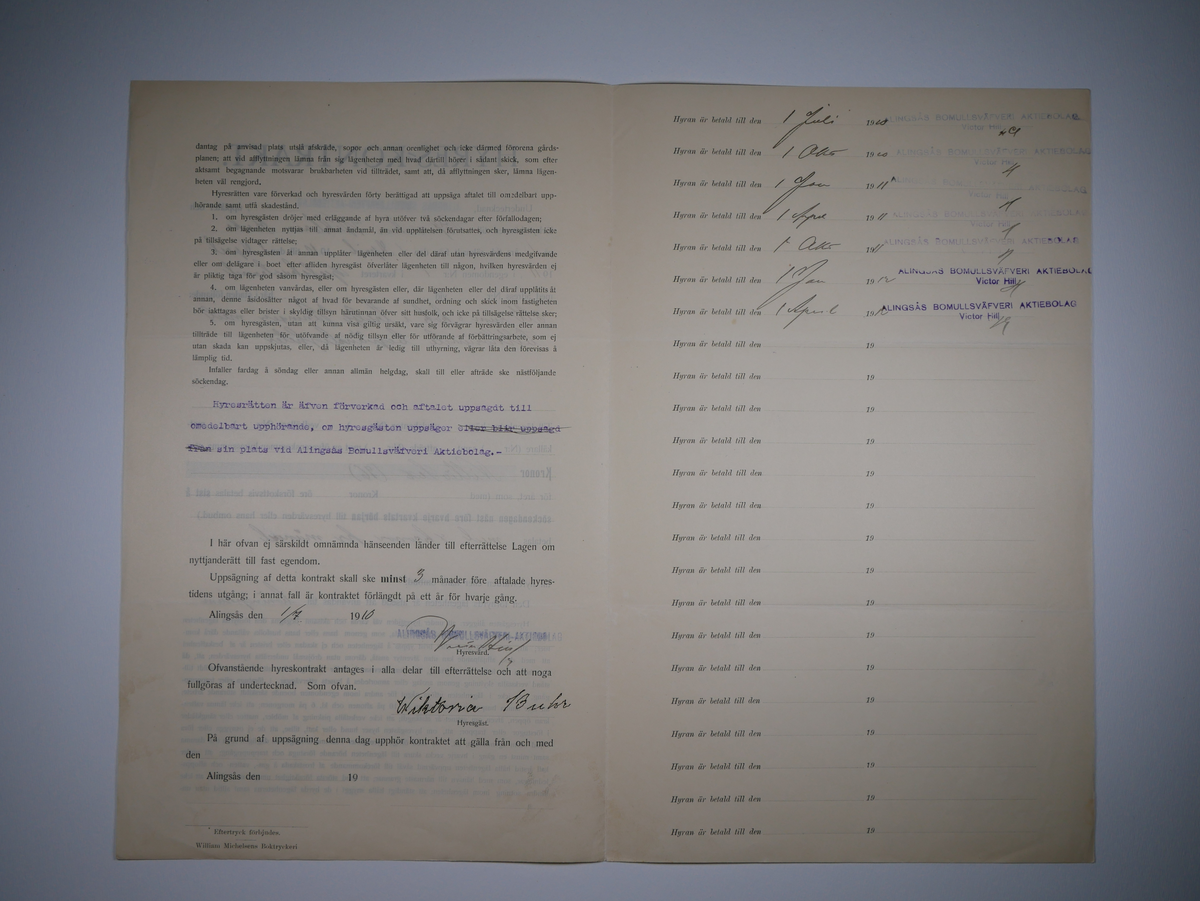 dantag på anvisad plats utslå afskräde, sopor och annan orenlighet och icke därmed förorena gårds-
planen; att vid afflyttningen lämna från sig lägenheten med hvad därtill hörer i sådant skick, som efter
aktsamt begagnande motsvarar brukbarheten vid tillträdet, samt att, då afflyttningen sker, lämna lägen-
heten väl rengjord.
Hyresrätten vare förverkad och hyresvärden förty berättigad att uppsäga aftalet till omedelbart upp-
hörande samt utfå skadestånd.
1. om hyresgästen dröjer med erläggande af hyra utöfver två söckendagar efter förfallodagen;
2. om lägenheten nyttjas till annat ändamål, än vid upplåtelsen förutsattes, och hyresgästen icke
på tillsägelse vidtager rättelse;
3. om hyresgästen åt annan upplåter lägenheten eller del däraf utan hyresvärdens medgifvande
eller om delägare i boet efter afliden hyresgäst öfverlåter lägenheten till någon, hvilken hyresvärden ej
är pliktig taga för god såsom hyresgäst;
4. om lägenheten vanvårdas, eller om hyresgästen eller, där lägenheten eller del däraf upplåtits åt
annan, denne åsidosätter något af hvad för bevarande af sundhet, ordning och skick inom fastigheten
bör iakttagas eller brister i skyldig tillsyn härutinnan öfver sitt husfolk, och icke på tillsägelse rättelse sker;
5. om hyresgästen, utan att kunna visa giltig ursäkt, vare sig förvägrar hyresvärden eller annan
tillträde till lägenheten för utöfvande af nödig tillsyn eller för utförande af förbättringsarbete, som ej
utan skada kan uppskjutas, eller, då lägenheten är ledig till uthyrning, vägrar låta den förevisas å
lämplig tid.
Infaller fardag å söndag eller annan allmän helgdag, skall till eller afträde ske nästföljande
söckendag.
Hyresrätten är äfven förverkad och aftalet uppsagdt till
omedelbart upphörande, om hyresgästen uppsäger eller blir uppsagd
från sin plats vid Alingsås Bomullsväfveri Aktiebolag.-
I här ofvan ej särskildt omnämnda hänseenden länder till efterrättelse Lagen om
nyttjanderätt till fast egendom.
Uppsägning af detta kontrakt skall ske minst 3 månader före aftalade hyres-
tidens utgång; i annat fall är kontraktet förlängdt på ett år för hvarje gång.
Alingsås den 1/7 1910
ALINGSÅS BOMULLSVÄFVERI AKTIEBOLAG
Hyresvärd.
Ofvanstående hyreskontrakt antages i alla delar till efterrättelse och att noga
fullgöras af undertecknad. Som ofvan.
Wiktoria Buhr
Hyresgäst.
På grund af uppsägning denna dag upphör kontraktet att gälla från och med
den
Alingsås den 19
Eftertryck förbjudes.
William Michelsens Boktryckeri
Hyran är betald till den 1 Juli 1910 ALINGSÅS BOMULLSVÄFVERI AKTIEBOLAG
Victor Hill
Hyran är betald till den 1 Okto 1910 ALINGSÅS BOMULLSVÄFVERI AKTIEBOLAG
Victor Hill
Hyran är betald till den 1 Jan 1911 ALINGSÅS BOMULLSVÄFVERI AKTIEBOLAG
Victor Hill
Hyran är betald till den 1 April 1911 ALINGSÅS BOMULLSVÄFVERI AKTIEBOLAG
Hyran är betald till den 1 Okto 1911 ALINGSÅS BOMULLSVÄFVERI AKTIEBOLAG
Hyran är betald till den 1 Jan 1912 ALINGSÅS BOMULLSVÄFVERI AKTIEBOLAG
Victor Hill
Hyran är betald till den 1 April 1912 ALINGSÅS BOMULLSVÄFVERI AKTIEBOLAG
Victor Hill
Hyran är betald till den 19
Hyran är betald till den 19
Hyran är betald till den 19
Hyran är betald till den 19
Hyran är betald till den 19
Hyran är betald till den 19
Hyran är betald till den 19
Hyran är betald till den 19
Hyran är betald till den 19
Hyran är betald till den 19
Hyran är betald till den 19
Hyran är betald till den 19
Hyran är betald till den 19
Hyran är betald till den 19
Hyran är betald till den 19
Hyran är betald till den 19